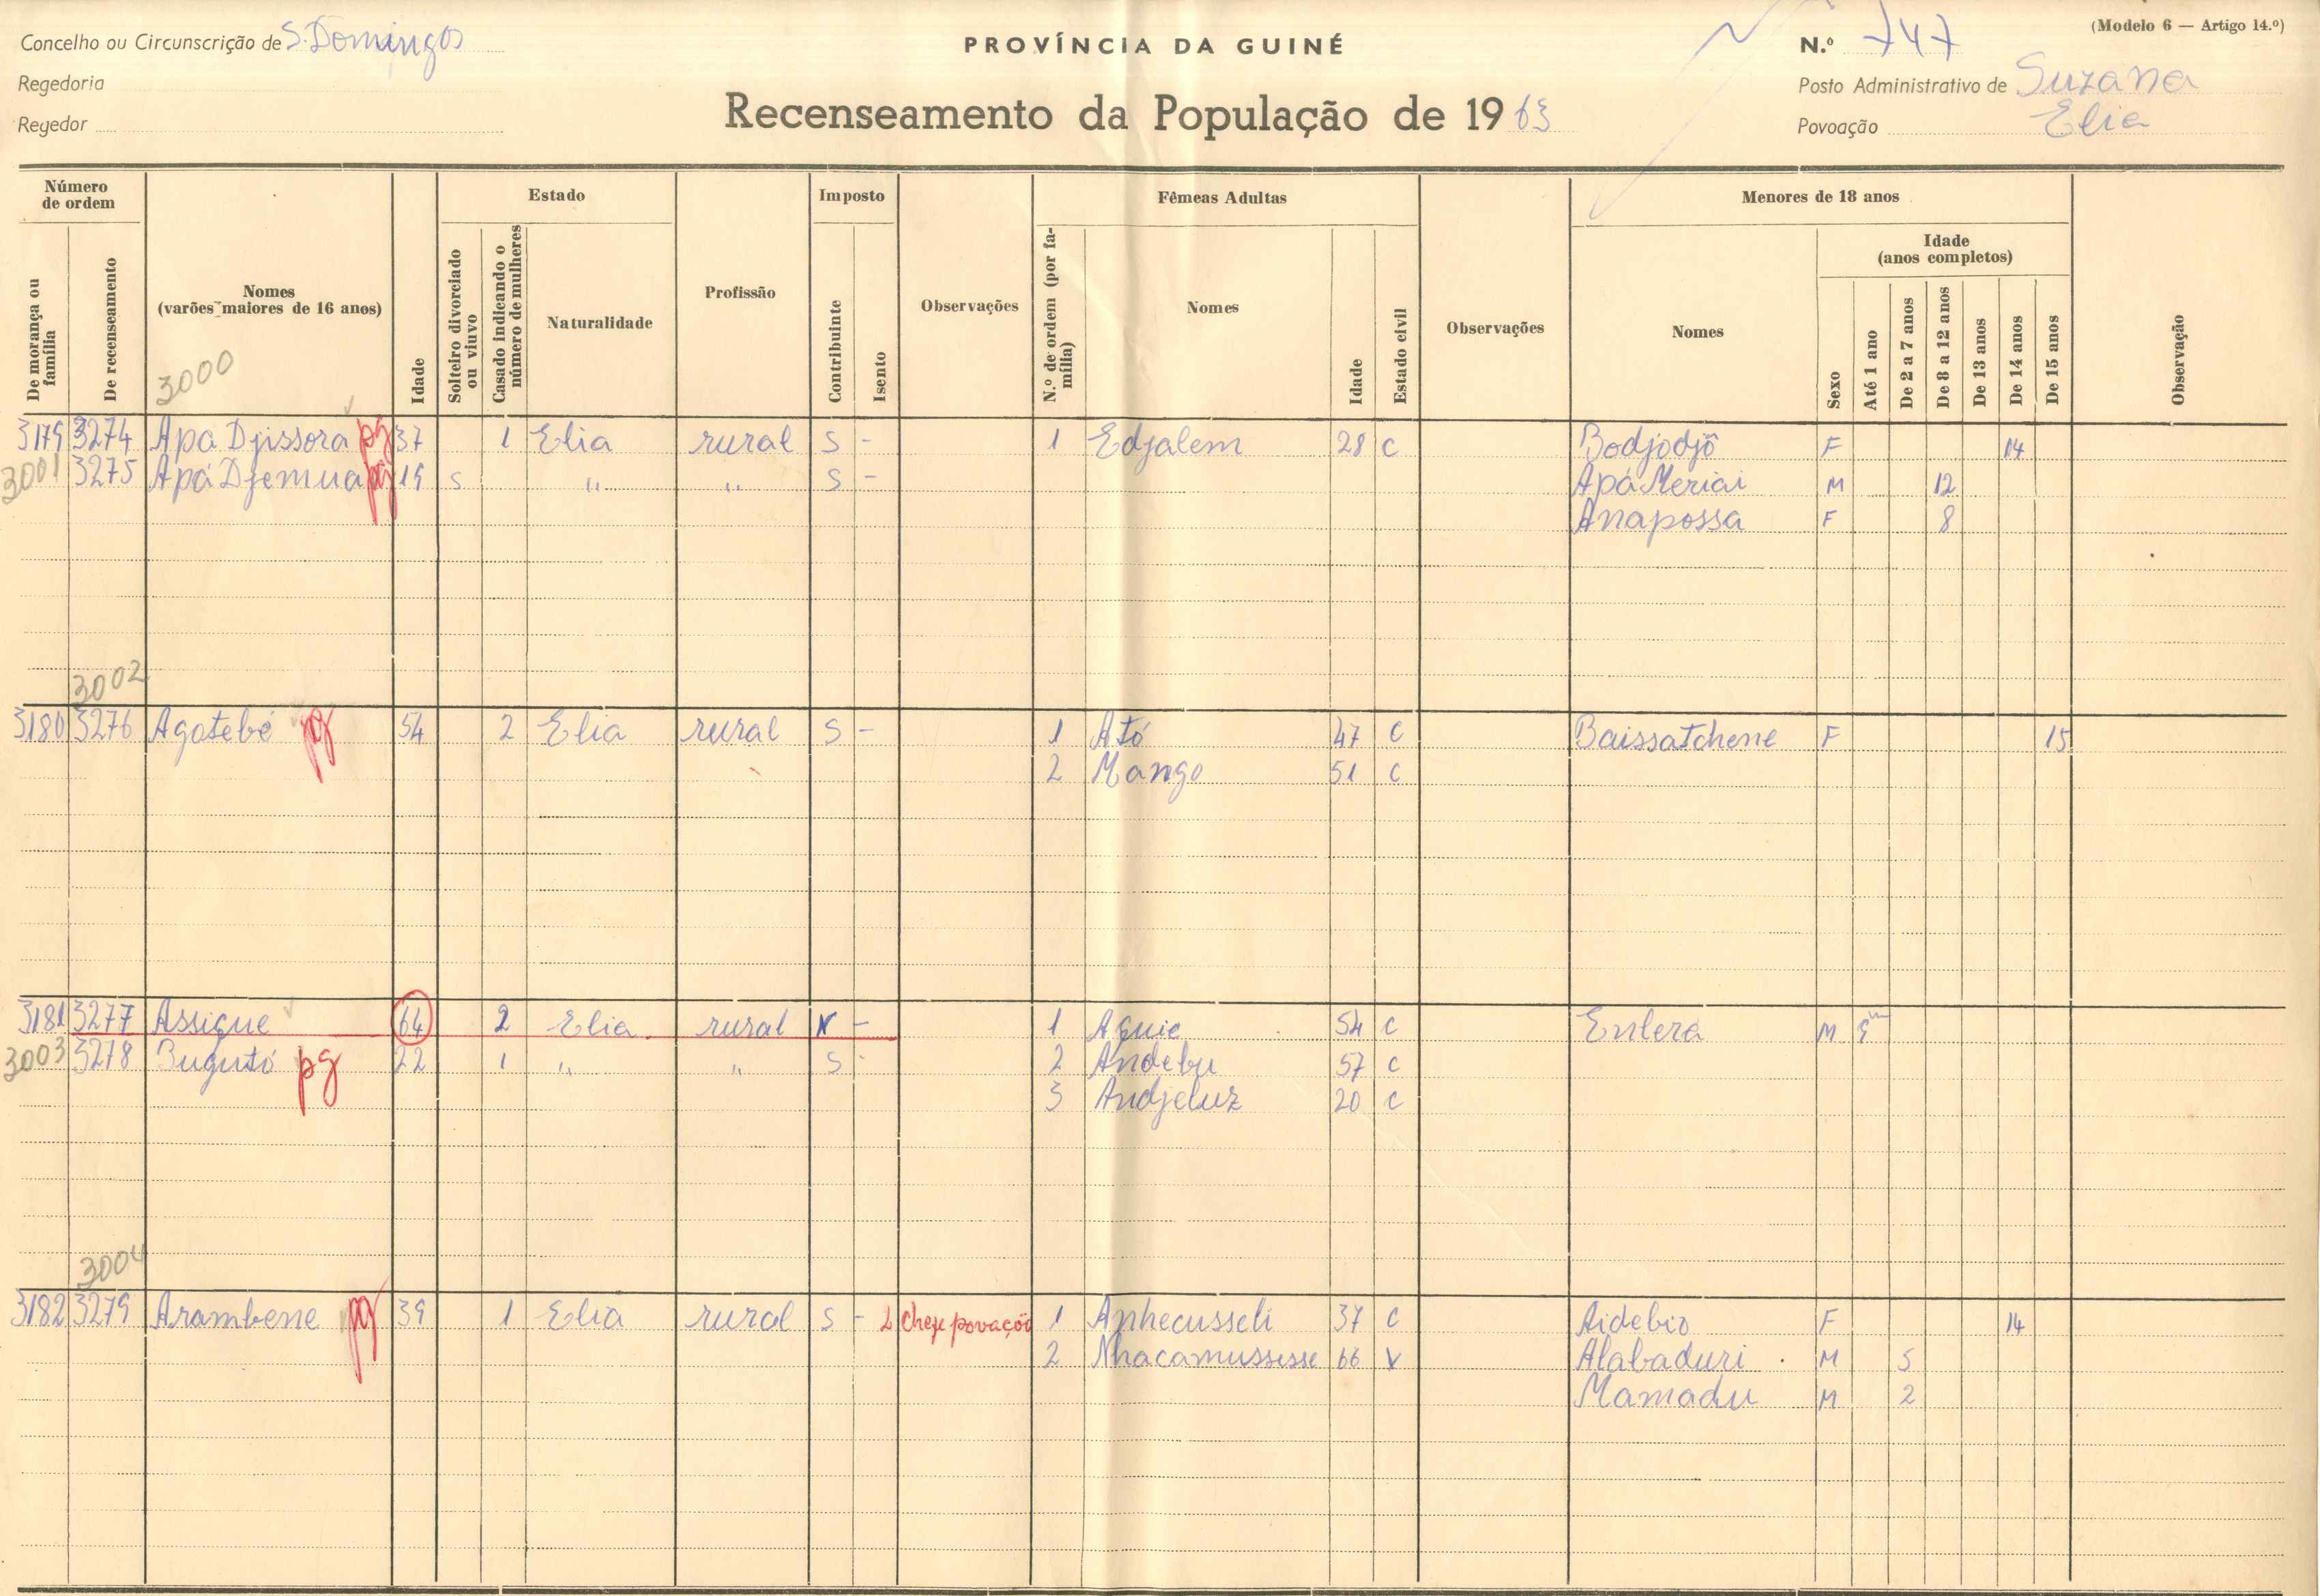 Concelho ou Circunscrição de S. Domingos
PROVÍNCIA DA GUINÉ
N.º 747
(Modelo 6 — Artigo 14.º)
Regedoria
Posto Administrativo de Suzana
Regedor
Recenseamento da População de 1963
Povoação Elia
Número de ordem
Estado
Imposto
Fêmeas Adultas
Menores de 18 anos
De morança ou família
De recenseamento
Nomes (varões maiores de 16 anos)
Idade
Solteiro divorciado ou viuvo
Casado indicando o número de mulheres
Naturalidade
Profissão
Contribuinte
Isento
Observações
N.º de ordem (por família)
Nomes
Idade
Estado civil
Observações
Nomes
Sexo
Idade (anos completos)
Até 1 ano
De 2 a 7 anos
De 8 a 12 anos
De 13 anos
De 14 anos
De 15 anos
Observação
3000
3179 3274 Apa Djissora pg 37 1 Elia rural S - 1 Edjalem 28 C Bodjodjô F 14
3001 3275 Apá Djemua pg 19 S " " S - Apá Meriai M 12
Anapossa F 8
3002
3180 3276 Agotebé pg 54 2 Elia rural S - 1 Ató 47 C Baissatchene F 15
2 Mango 51 C
3181 3277 Assique 64 2 Elia rural N - 1 Aguie 54 C Entera M
3003 3278 Bugustó pg 22 1 " " S - 2 Andebu 57 C
3 Andjeluz 20 C
3004
3182 3279 Arambene pg 39 1 Elia rural S - chefe povação 1 Anhecusseli 37 C Aidebio F 14
2 Nhacamussesse 66 V Alabaduri M 5
Mamadu M 2